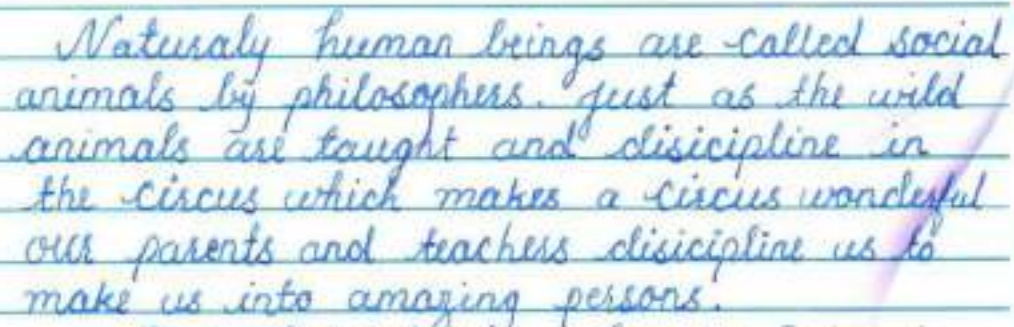 Naturaly human beings are called social
animals by philosophers. Just as the wild
animals are taught and disicipline in
the circus which makes a circus wonderful
our parents and teachers disicipline us to
make us into amazing persons.